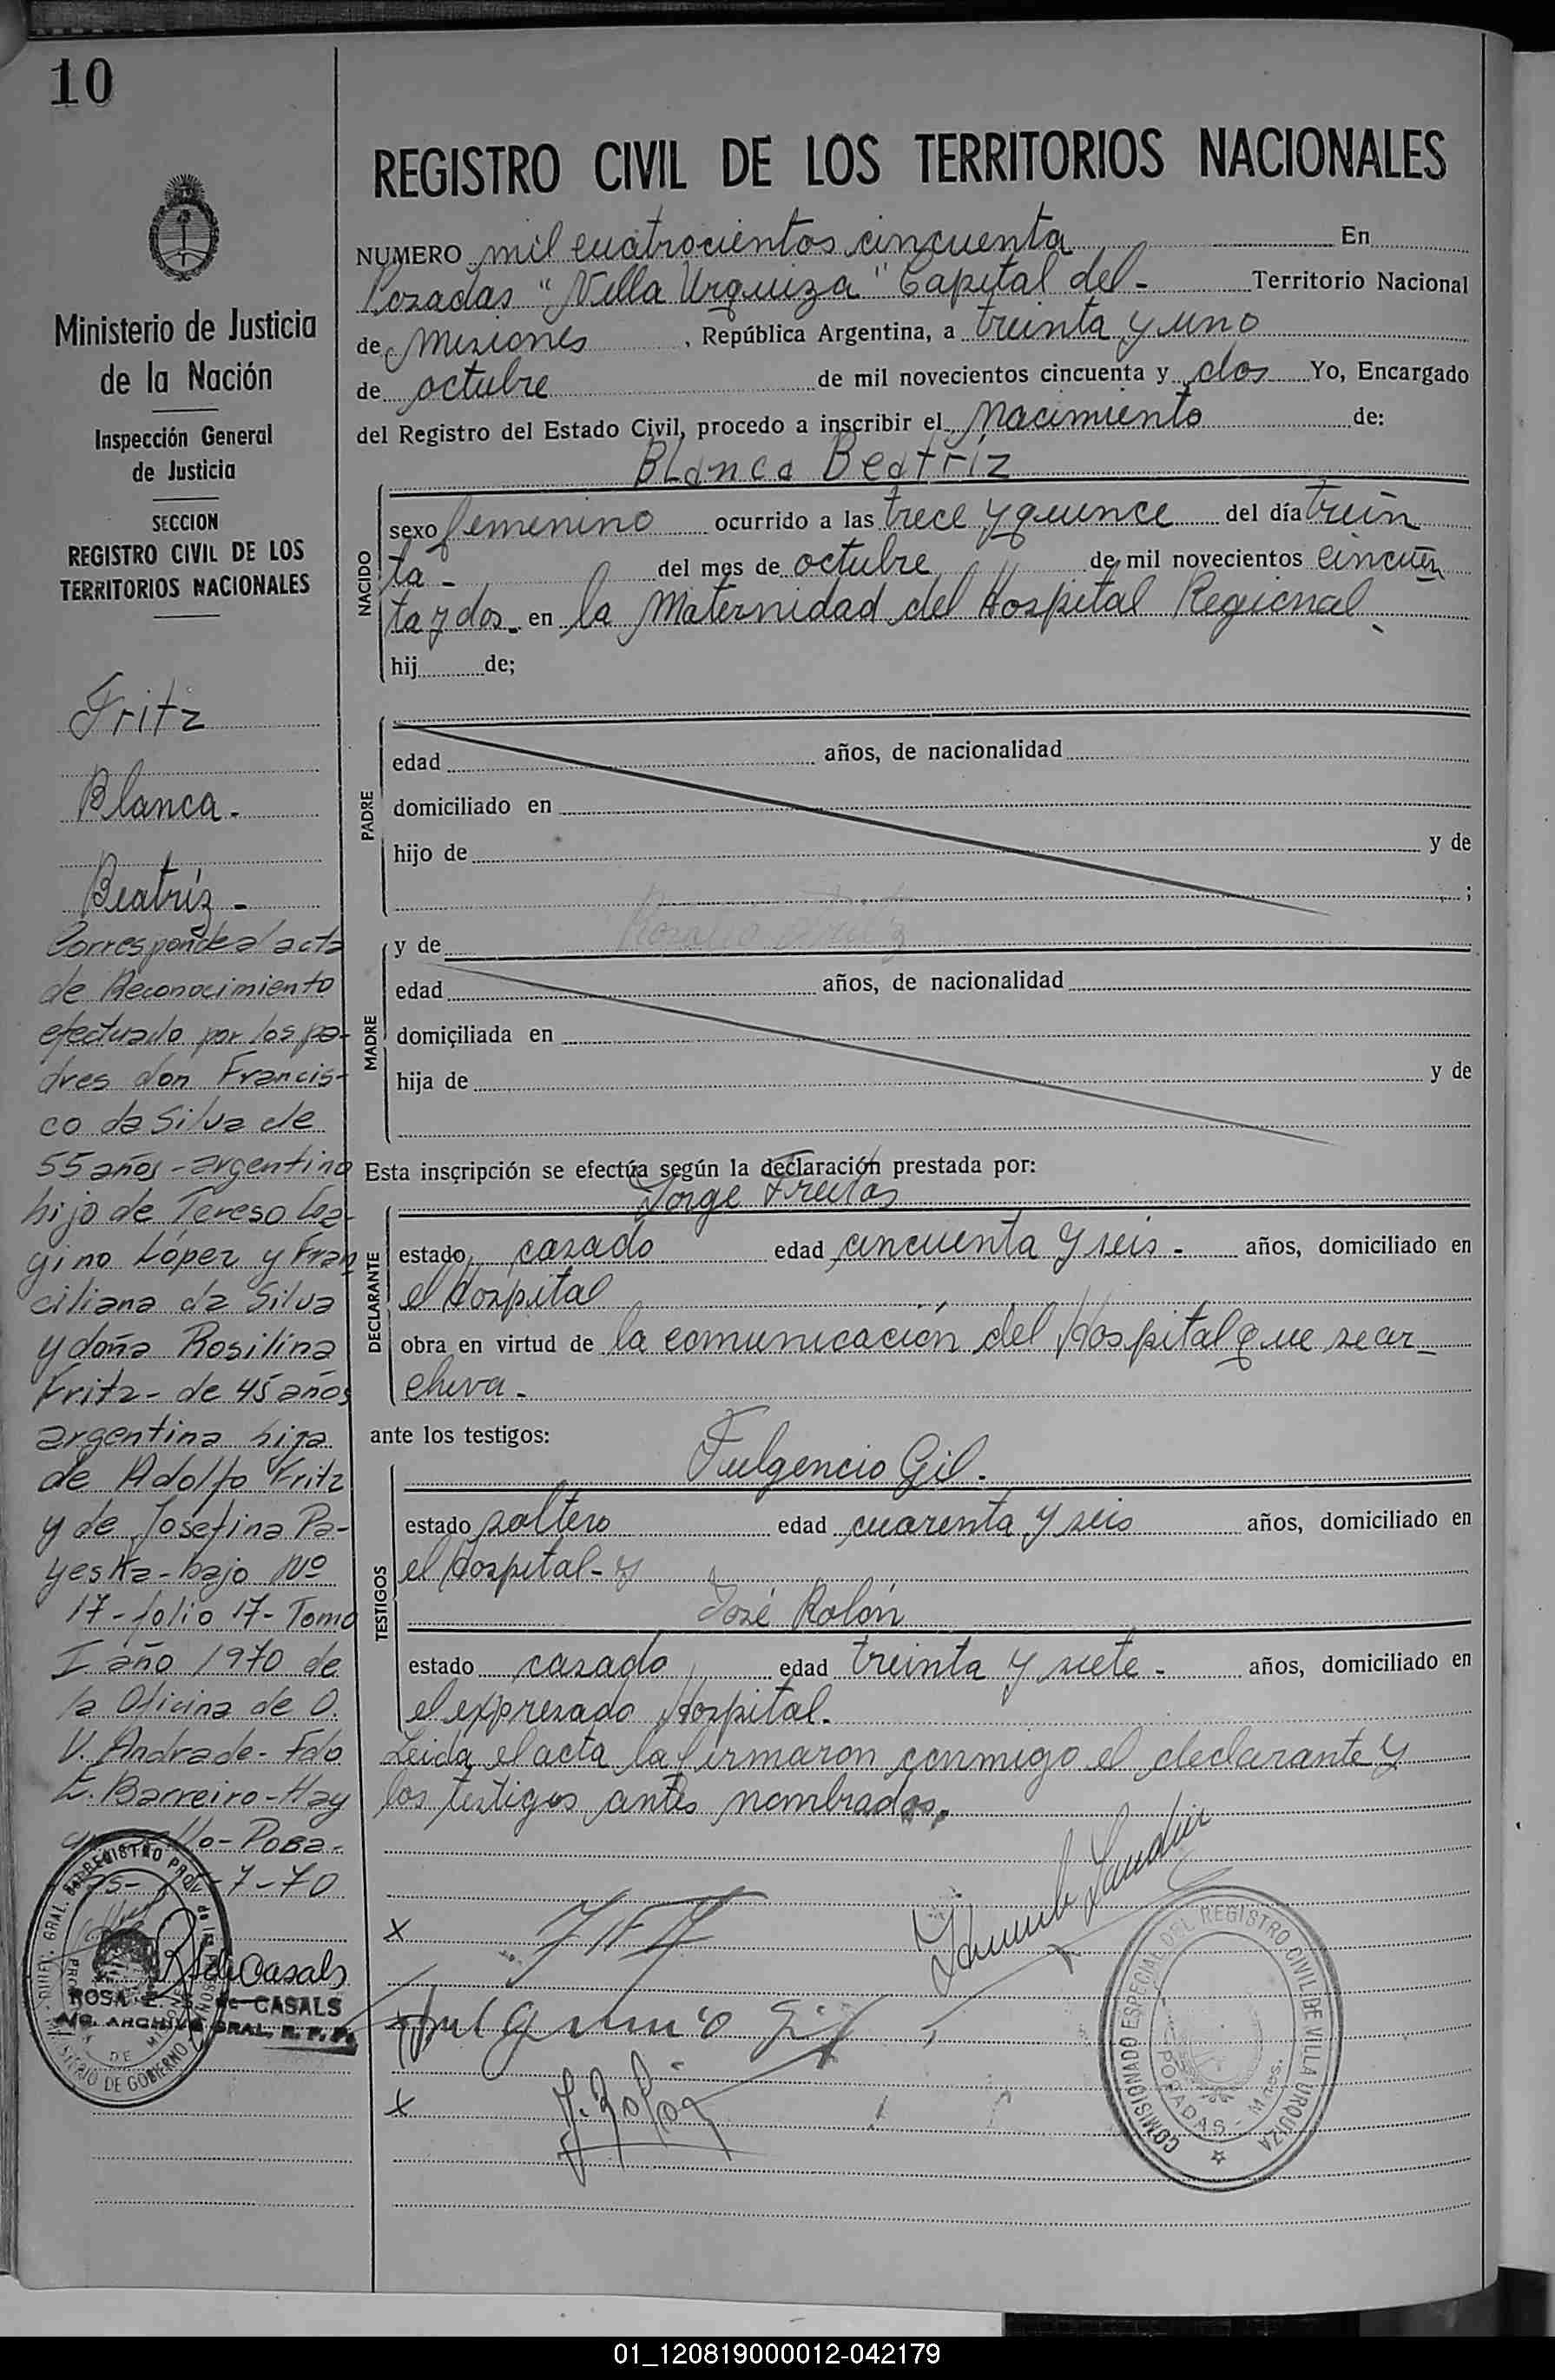 10
Ministerio de Justicia
de la Nación
Inspección General
de Justicia
SECCION
REGISTRO CIVIL DE LOS
TERRITORIOS NACIONALES
Fritz
Blanca.
Beatríz -
Corresponde al acta
de Reconocimiento
efectuado por los pa-
dres don Francis-
co da Silva de
55 años - argentino
hijo de Tereso Loz-
gino López y Fran
ciliana da Silva
y doña Rosilina
Fritz - de 45 años
argentina hija
de Adolfo Fritz
y de Josefina Pa-
yeska - bajo Nº
17 - folio 17 - Tomo
I año 1970 de
la Oficina de O.
V. Andrade - Fdo
E. Barreiro - Hay
Posa-
7-70
ROSA E. de CASALS
REGISTRO CIVIL DE LOS TERRITORIOS NACIONALES
NUMERO mil cuatrocientos cincuenta En
Posadas "Villa Urquiza" Capital del - Territorio Nacional
de Misiones, República Argentina, a treinta y uno
de octubre de mil novecientos cincuenta y dos Yo, Encargado
del Registro del Estado Civil, procedo a inscribir el nacimiento de:
Blanca Beatríz
NACIDO
sexo femenino ocurrido a las trece y quince del día trein
ta - del mes de octubre de mil novecientos cincuen
ta y dos. en la Maternidad del Hospital Regional
hij de;
PADRE
edad años, de nacionalidad
domiciliado en
hijo de y de
;
MADRE
y de
edad años, de nacionalidad
domiciliada en
hija de y de
Esta inscripción se efectúa según la declaración prestada por:
Jorge Freitas
DECLARANTE
estado casado edad cincuenta y seis - años, domiciliado en
el Hospital
obra en virtud de la comunicación del Hospital que se ar-
chiva -
ante los testigos:
Fulgencio Gil.
TESTIGOS
estado soltero edad cuarenta y seis años, domiciliado en
el Hospital - y
José Rolón
estado casado edad treinta y siete - años, domiciliado en
el expresado Hospital.
Leida el acta la firmaron conmigo el declarante y
los testigos antes nombrados.
Fulgencio Gil
J. Rolón
COMISIONADO ESPECIAL DEL REGISTRO CIVIL DE VILLA URQUIZA
POSADAS - Mnes.
01_120819000012-042179